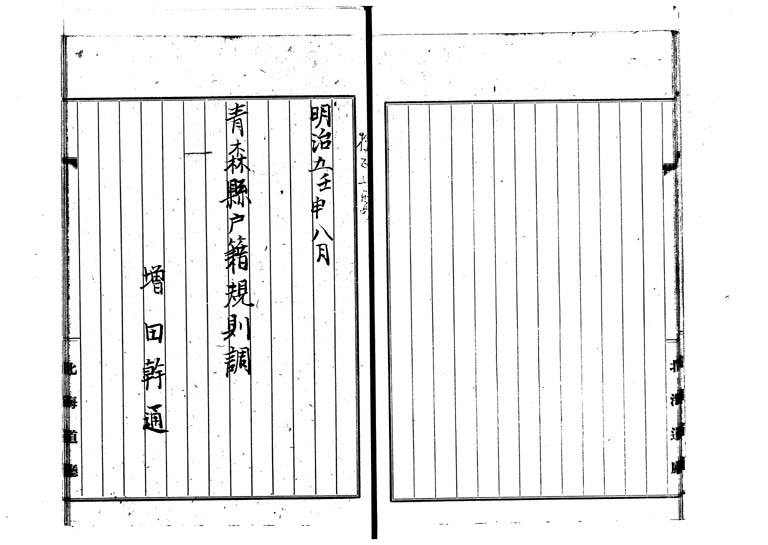 明治五壬申八月
青森縣戸籍規則調
一
増田幹通
北海道廳
北海道廳